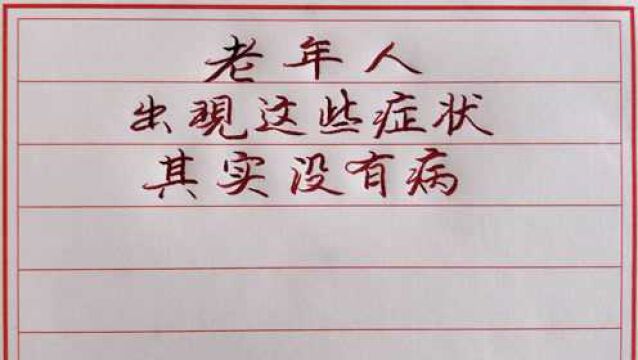 老年人
出現这些症状
其实没有病